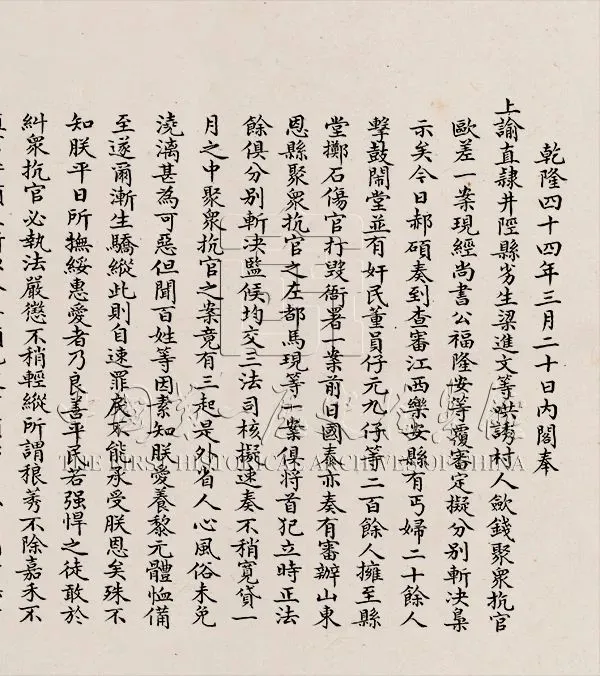 乾隆四十四年三月二十日內閣奉
上諭直隸井陘縣劣生梁進文等哄誘村人歛錢聚衆抗官
歐差一案現經尚書公福隆安等覆審定擬分別斬決梟
示矣今日郝碩奏到查審江西樂安縣有丐婦二十餘人
擊鼓鬧堂並有奸民董員仔元九仔等二百餘人擁至縣
堂擲石傷官打毀衙署一案前日國泰亦奏有審辦山東
恩縣聚衆抗官之左都馬現等一案俱將首犯立時正法
餘俱分別斬決監候均交三法司核擬速奏不稍寬貸一
月之中聚衆抗官之案竟有三起是外省人心風俗未免
澆漓甚為可惡但聞百姓等因素知朕愛養黎元體恤備
至遂爾漸生驕縱此則自速罪戾不能承受朕恩矣殊不
知朕平日所撫綏惠愛者乃良善平民若強悍之徒敢於
糾衆抗官必執法嚴懲不稍輕縱所謂稂莠不除嘉禾不
中國第一歷史檔案館
THE FIRST HISTORICAL ARCHIVES OF CHINA